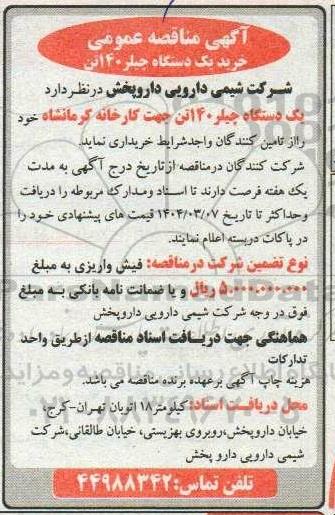 آگهی مناقصه عمومی
خرید یک دستگاه چیلر ۱۴۰تن
شرکت شیمی دارویی داروپخش درنظر دارد
یک دستگاه چیلر ۱۴۰تن جهت کارخانه کرمانشاه خود
رااز تامین کنندگان واجدشرایط خریداری نماید.
شرکت کنندگان درمناقصه ازتاریخ درج آگهی به مدت
یک هفته فرصت دارند تا اسناد ومدارک مربوطه را دریافت
وحداکثر تا تاریخ ۱۴۰۴/۰۳/۰۷ قیمت های پیشنهادی خود را
در پاکات دربسته اعلام نمایند.
نوع تضمین شرکت درمناقصه: فیش واریزی به مبلغ
۵.۰۰۰.۰۰۰.۰۰۰ ریال و یا ضمانت نامه بانکی به مبلغ
فوق در وجه شرکت شیمی دارویی داروپخش
هماهنگی جهت دریافت اسناد مناقصه ازطریق واحد
تدارکات
هزینه چاپ آگهی برعهده برنده مناقصه می باشد.
محل دریافت اسناد: کیلومتر۱۸ اتوبان تهران-کرج،
خیابان داروپخش،روبروی بهزیستی، خیابان طالقانی،شرکت
شیمی دارویی دارو پخش
تلفن تماس: ۴۴۹۸۸۳۴۲